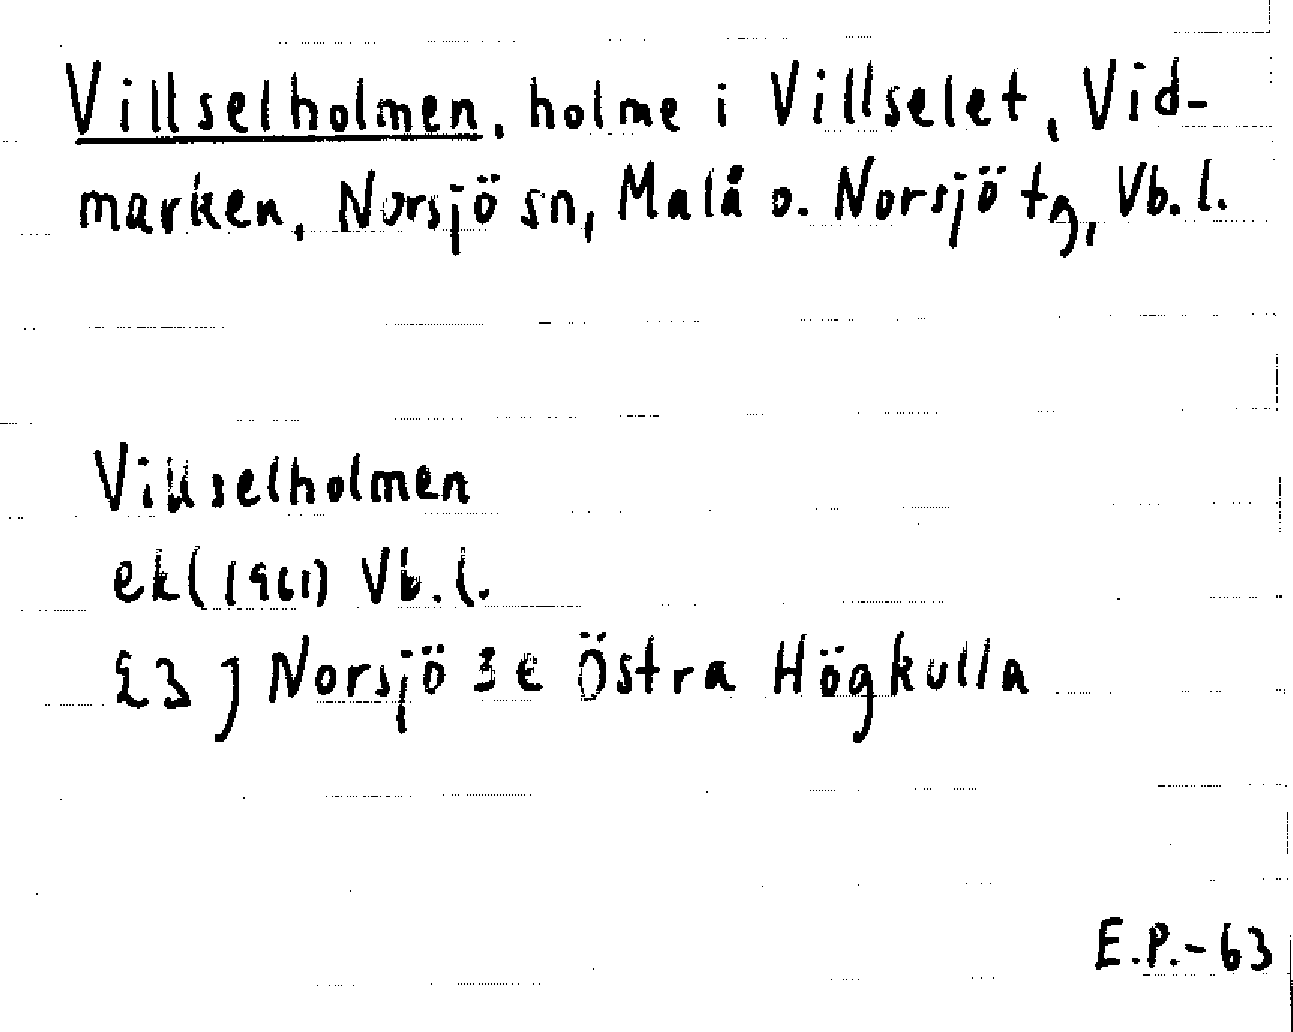 Villselholmen, holme i Villselet, Vid-
marken, Norsjö sn, Malå o. Norsjö tg, Vb. l.
Villselholmen
ek (1961) Vb. l.
23 J Norsjö 3 e Östra Högkulla
E.P.-63